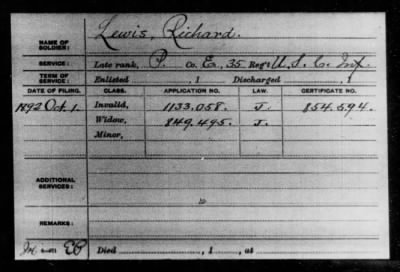 NAME OF SOLDIER: Lewis, Richard.
SERVICE: Late rank, P. Co. E, 35 Reg't U.S.C. Inf.
TERM OF SERVICE: Enlisted , 1 Discharged , 1
DATE OF FILING. CLASS. APPLICATION NO. LAW. CERTIFICATE NO.
1892 Oct. 1. Invalid, 1133.058. J. 854.594.
Widow, 849.495. J.
Minor,
ADDITIONAL SERVICES:
REMARKS:
Died , 1 , at